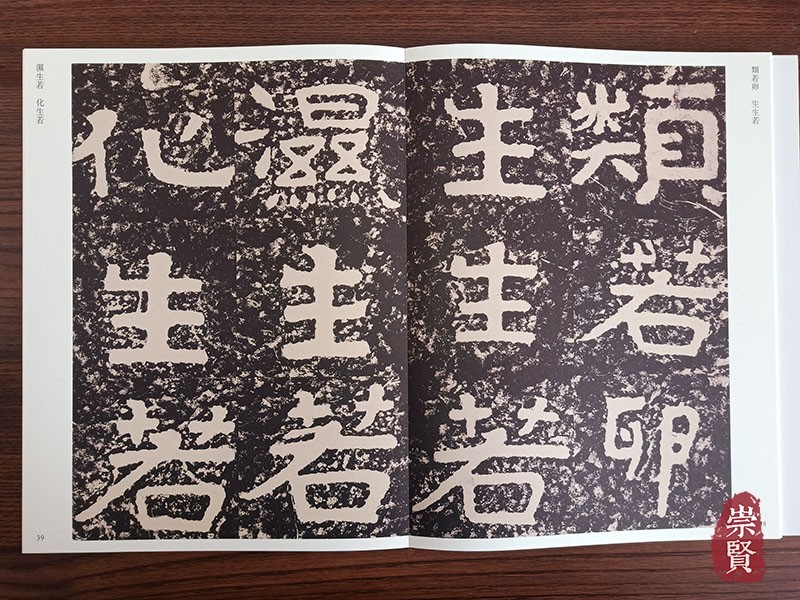 類若卵　生生若
類若卵
生生若
濕生若
化生若
濕生若　化生若
39
崇賢